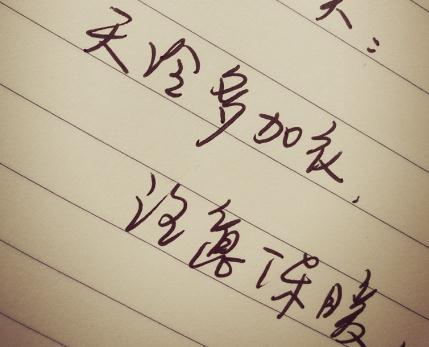 天冷多加衣,
注意保暖